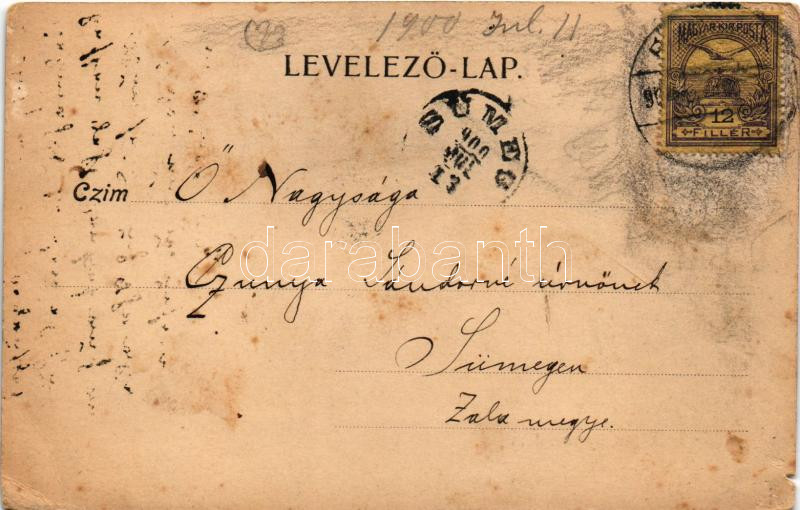 1900 Jul. 11
LEVELEZŐ-LAP.
MAGYAR KIR. POSTA
12
FILLÉR
SÜMEG
900
JUL
13
Czim Ő Nagysága
Czunya Sándorné úrnőnek
Sümegen
Zala megye.
darabanth